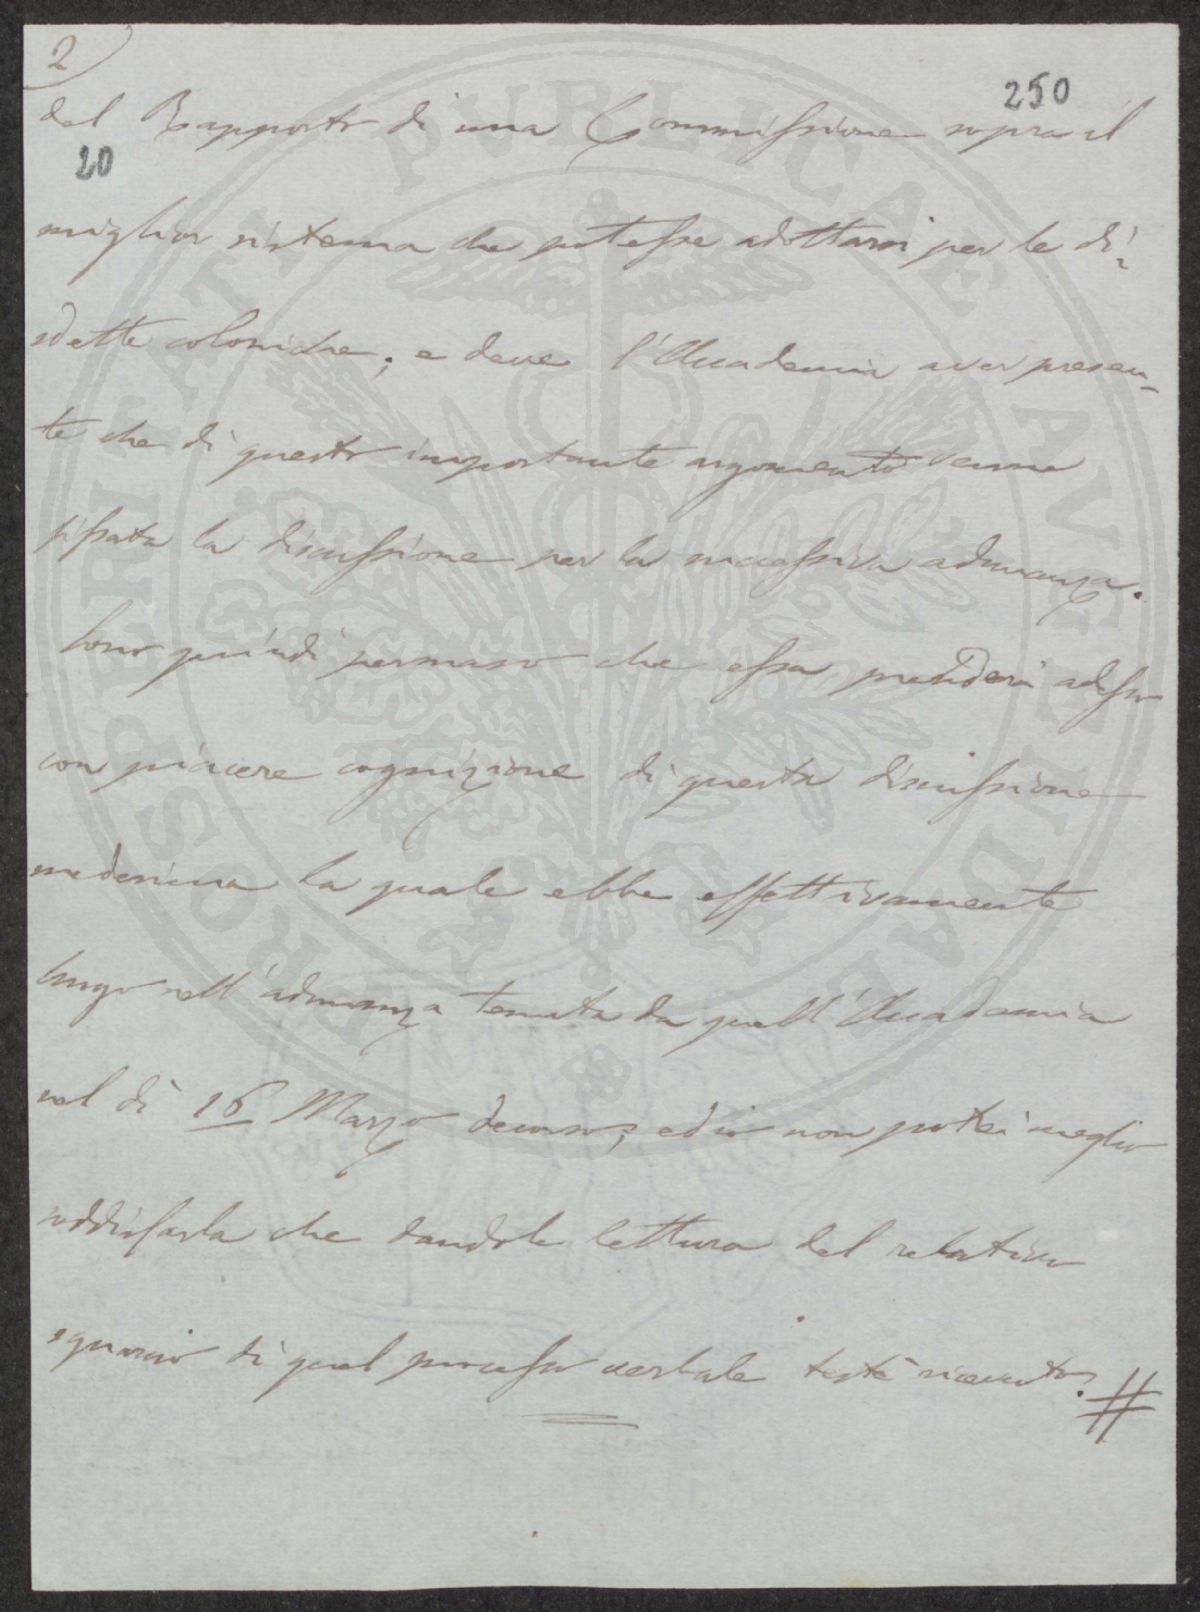 2)
250
del Rapporto di una Commissione sopra il
20
miglior sistema che potesse adottarsi per le di-
sdette coloniche; e deve l'Accademia aver presen-
te che di questo importante argomento venne
fissata la discussione per la successiva adunanza.
Sono quindi persuaso che essa prenderà adesso
con piacere cognizione di questa discussione
medesima la quale ebbe effettivamente
luogo nell'adunanza tenuta da quell'Accademia
nel dì 16 Marzo decorso; ed io non potrei meglio
soddisfarla che dandole lettura del relativo
squarcio di quel processo verbale testè ricevuto. #
PROSPERITATI PUBLICAE AUGENDAE